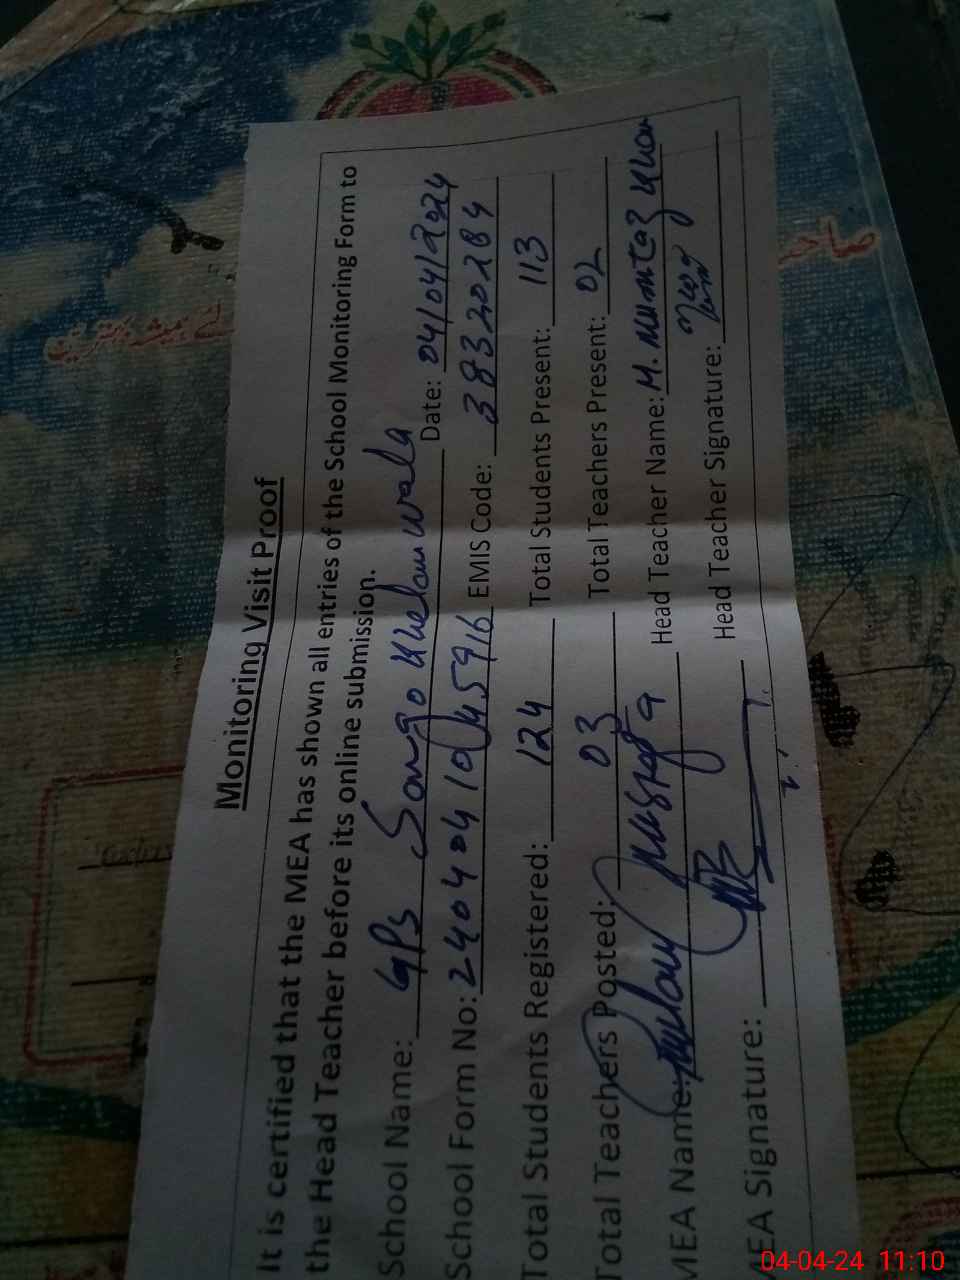 Monitoring Visit Proof
It is certified that the MEA has shown all entries of the School Monitoring Form to
the Head Teacher before its online submission.
School Name: GPS Sango Khelanwala Date: 04/04/2024
School Form No: 24040410045916 EMIS Code: 38320284
Total Students Registered: 124 Total Students Present: 113
Total Teachers Posted: 03 Total Teachers Present: 02
MEA Name: Mustafa Head Teacher Name: M. Mumtaz Khan
MEA Signature: Head Teacher Signature:
04-04-24 11:10